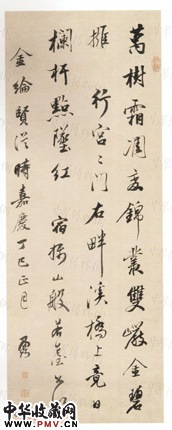 萬樹霜凋交錦叢雙巖金碧
擁行宮宮門右畔溪橋上竟日
欄杆點墜紅 宿 山般若
金綸賢 時嘉慶丁巳正月 
中华收藏网
www.PMV.cn